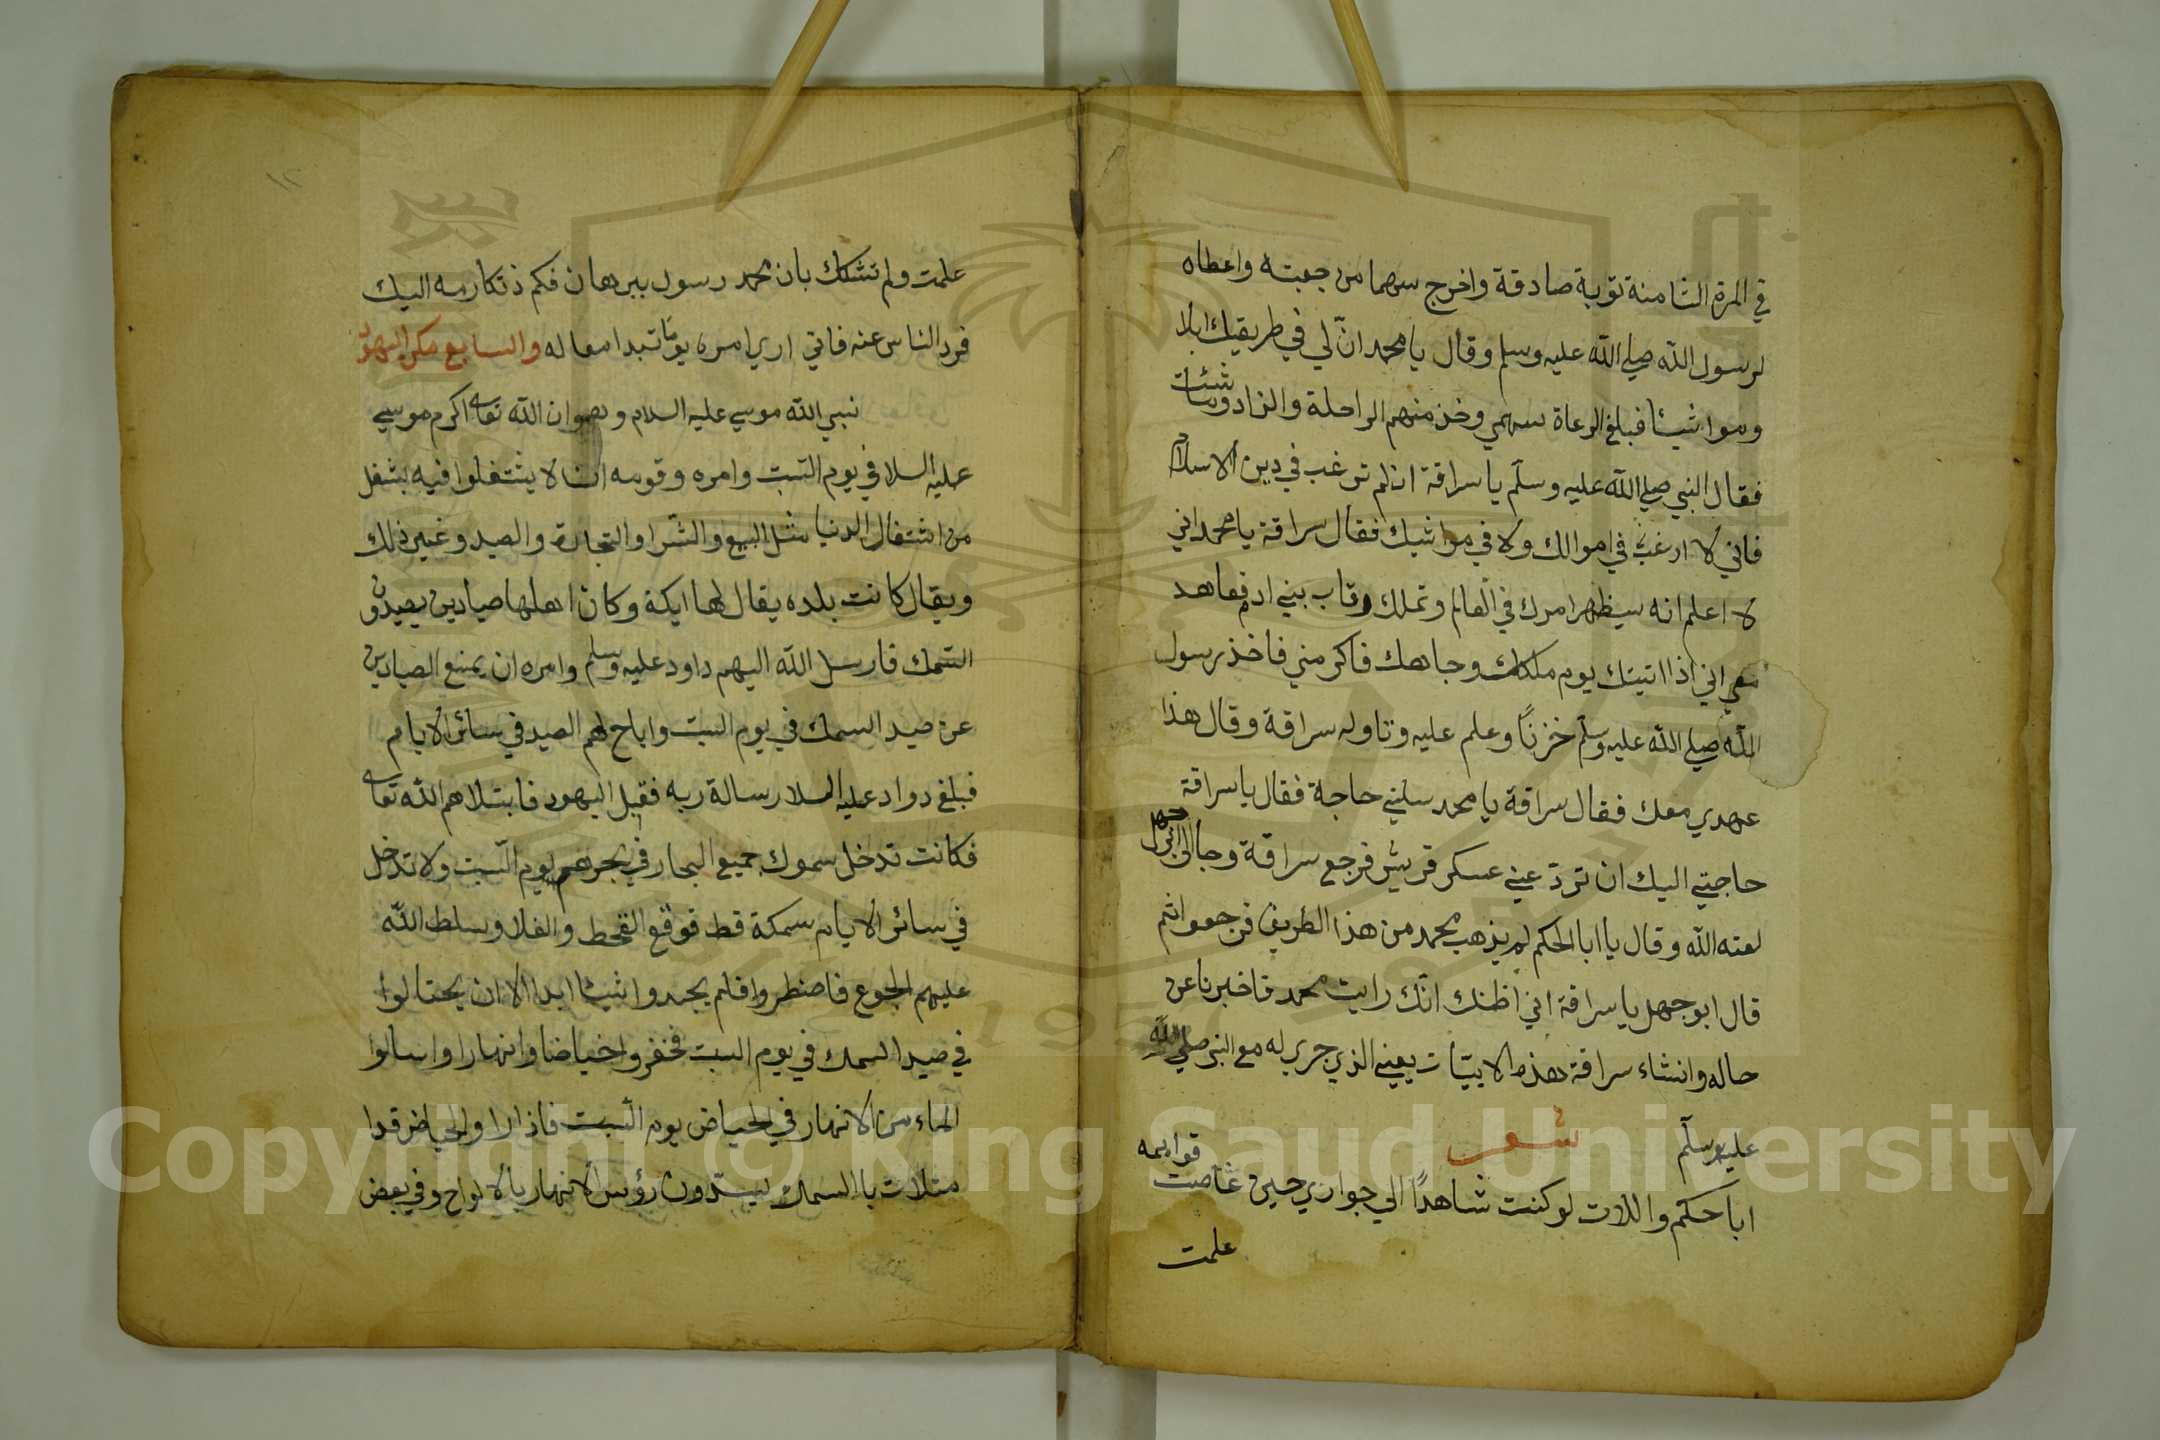 في المرة الثامنة توبة صادقة واخرج سهما من جعبته واعطاه
لرسول الله صلي الله عليه وسلم وقال يا محمد انّ لي في طريقيك ابلا
ومواشيا فبلغ الرعاة سهمي وخذ منهم الراحلة والزاد وشئات
فقال النبي صلي الله عليه وسلّم يا سراقة ان لم ترغب في دين الاسلام
فاني لا ارغب في اموالك ولا في مواشيك فقال سراقة يا محمد اني
لا اعلم انه سيظهر امرك في العالم وتملك رقاب بني ادم فعاهد
معي اني اذا اتيتك يوم ملكك وجاهك فاكرمني فاخذ رسول
الله صلي الله عليه وسلّم خزنًا وعلم عليه وناوله سراقة وقال هذا
عهدي معك فقال سراقة يا محمد سلني حاجة فقال يا سراقة
حاجتي اليك ان تردّ عني عسكر قريش فرجع سراقة وجا الى ابي جهل
لعنه الله وقال يا ابا الحكم لم يذهب محمد من هذا الطريق فرجعوا ثم
قال ابو جهل يا سراقة اني اظنك انّك رايت محمد فاخبرنا عن
حاله وانشاء سراقة هذه الابيات يعني الذي جري له مع النبي صلي الله
عليه وسلّم شعر
ابا حكم واللات لو كنت شاهدًا الي جوادي حين غاصت قوايمه
علمت
١٢
علمت ولم تشكك بان محمد رسول ببرهان فكم ذتكارمه اليك
فرد الناس عنه فاني اري امره يومًا تبدا معاله والسابع مكر اليهود
نبي الله موسي عليه السلام وهو ان الله تعالى اكرم موسي
عليه السلا في يوم السّبت وامره وقومه ان لا يشتغلوا فيه بشغل
من اشتغال الدنيا مثل البيع والشّرا والتجارة والصيد وغير ذلك
ويقال كانت بلده يقال لها ايكة وكان اهلها صيادين يصيدون
السّمك فارسل الله اليهم داود عليه وسلم وامره ان يمنع الصيادين
عن صيد السمك في يوم السبت واباح لهم الصيد في سائر الايام
فبلغ دواد عليه السلا رسالة ربه فقبل اليهود فابتلاهم الله تعالى
فكانت تدخل سموك جميع البحار في بحرهم يوم السّبت ولا تدخل
في سائر الايام سمكة قط فوقع القحط والغلا وسلط الله
عليهم الجوع فاضطروا فلم يجدوا شيئا ابدا الا ان يحتالوا
في صيد السمك في يوم السبت فحفروا حياضا وانهارا واسالوا
الماء من الانهار في الحياض يوم السّبت فاذا راو الحياض قد ا
متلات با السمك ليسدون رؤس الانهار بالالواح وفي بعض
Copyright © King Saud University